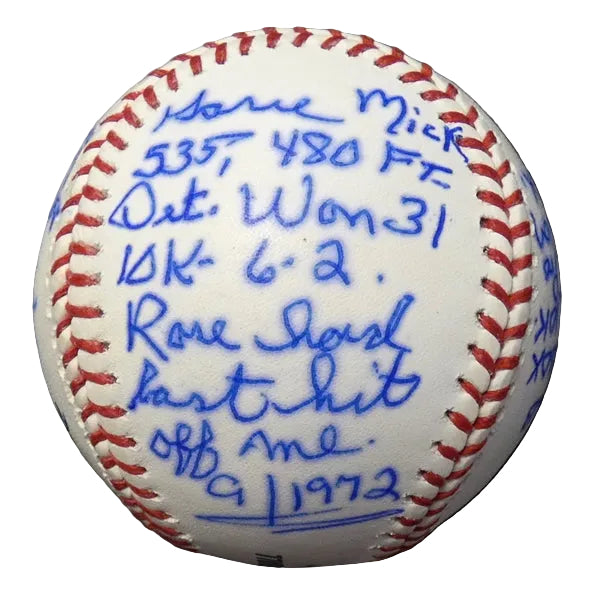 Gave Mick
535, 480 FT.
Det. Won 31
10K- 6-2.
Rose had
Last hit
off me.
9/1972